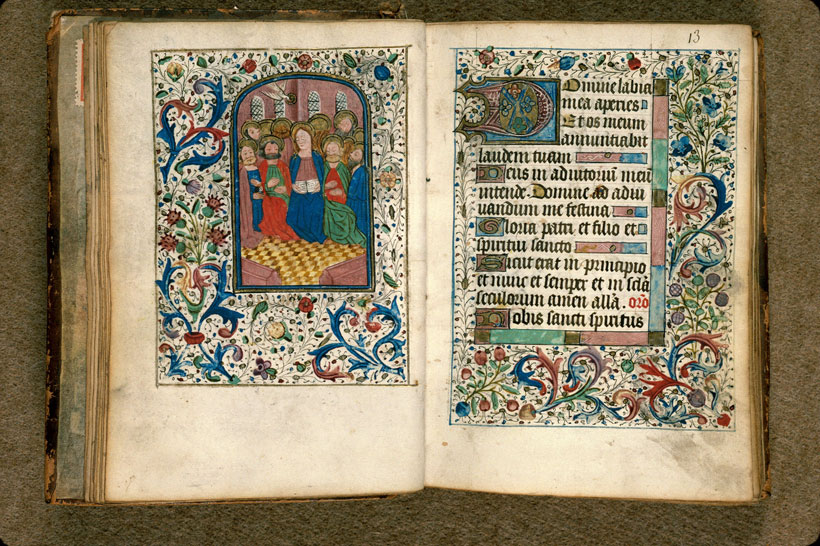 13
Domine labia
mea aperies
Et os meum
annuntiabit
laudem tuam
Deus in adiutorium meū
intende. Domine ad adiu
uandum me festina
Gloria patri et filio et
spiritui sancto
Sicut erat in principio
et nunc et semper et in sclā
seculorum amen allā. oro
Nobis sancti spiritus